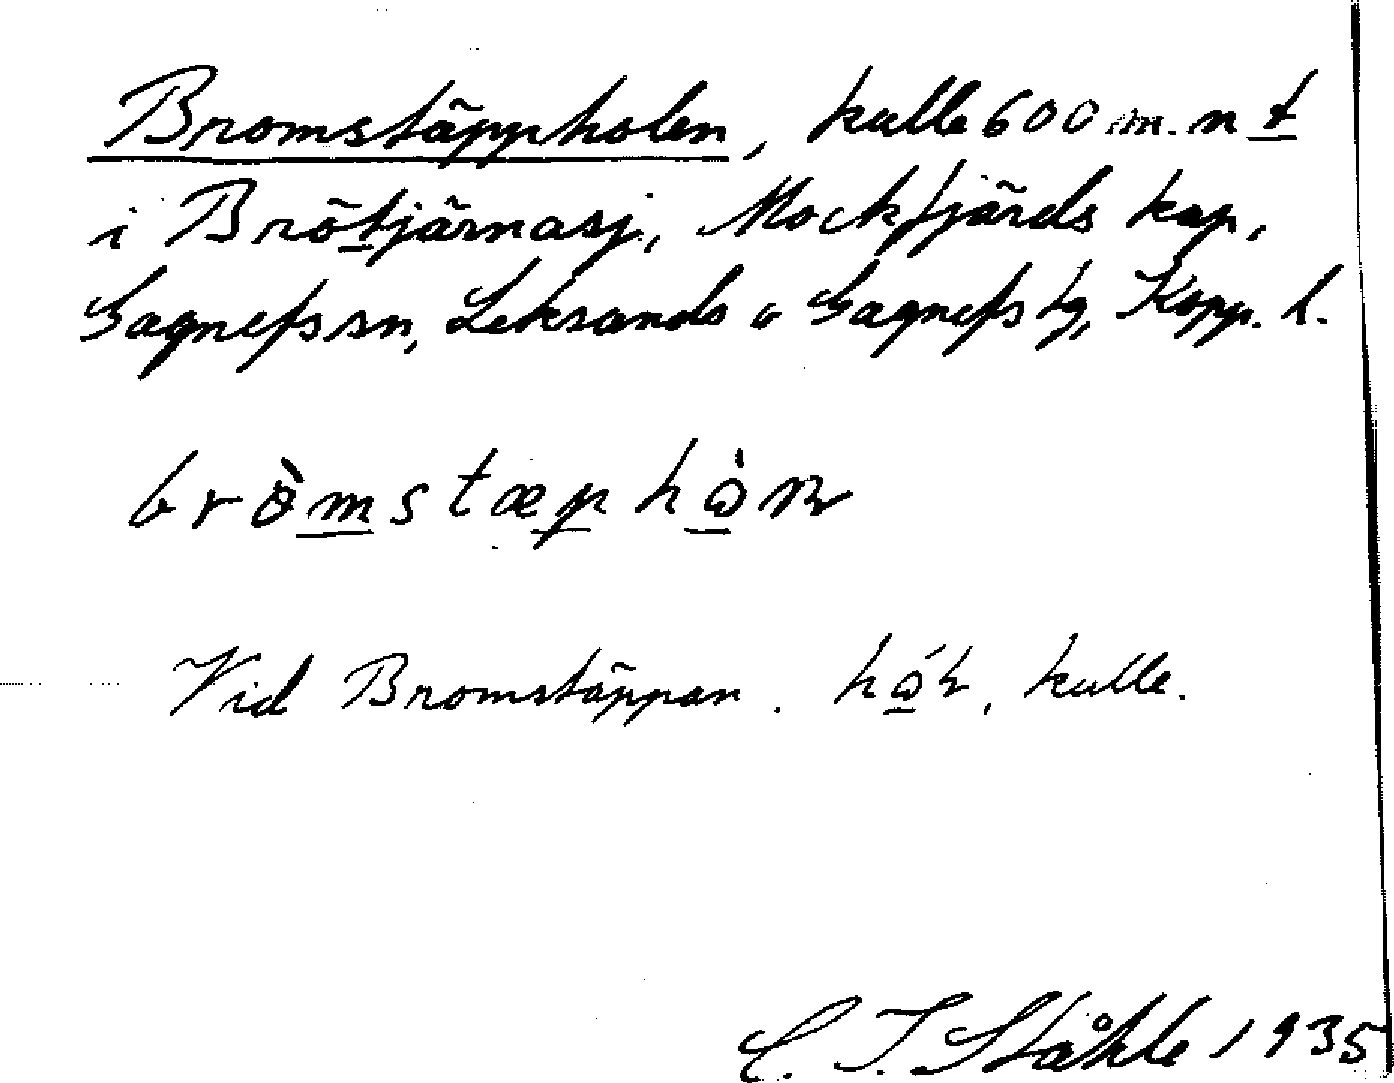 Bromstäppholen, kulle 600 m. n t
i Brötjärnasj, Mockfjärds kap,
Gagnefs sn, Leksands o Gagnefs tg, Kopp. l.
Vid Bromstäppan. hó̱l, kulle.
C. I. Ståhle 1935